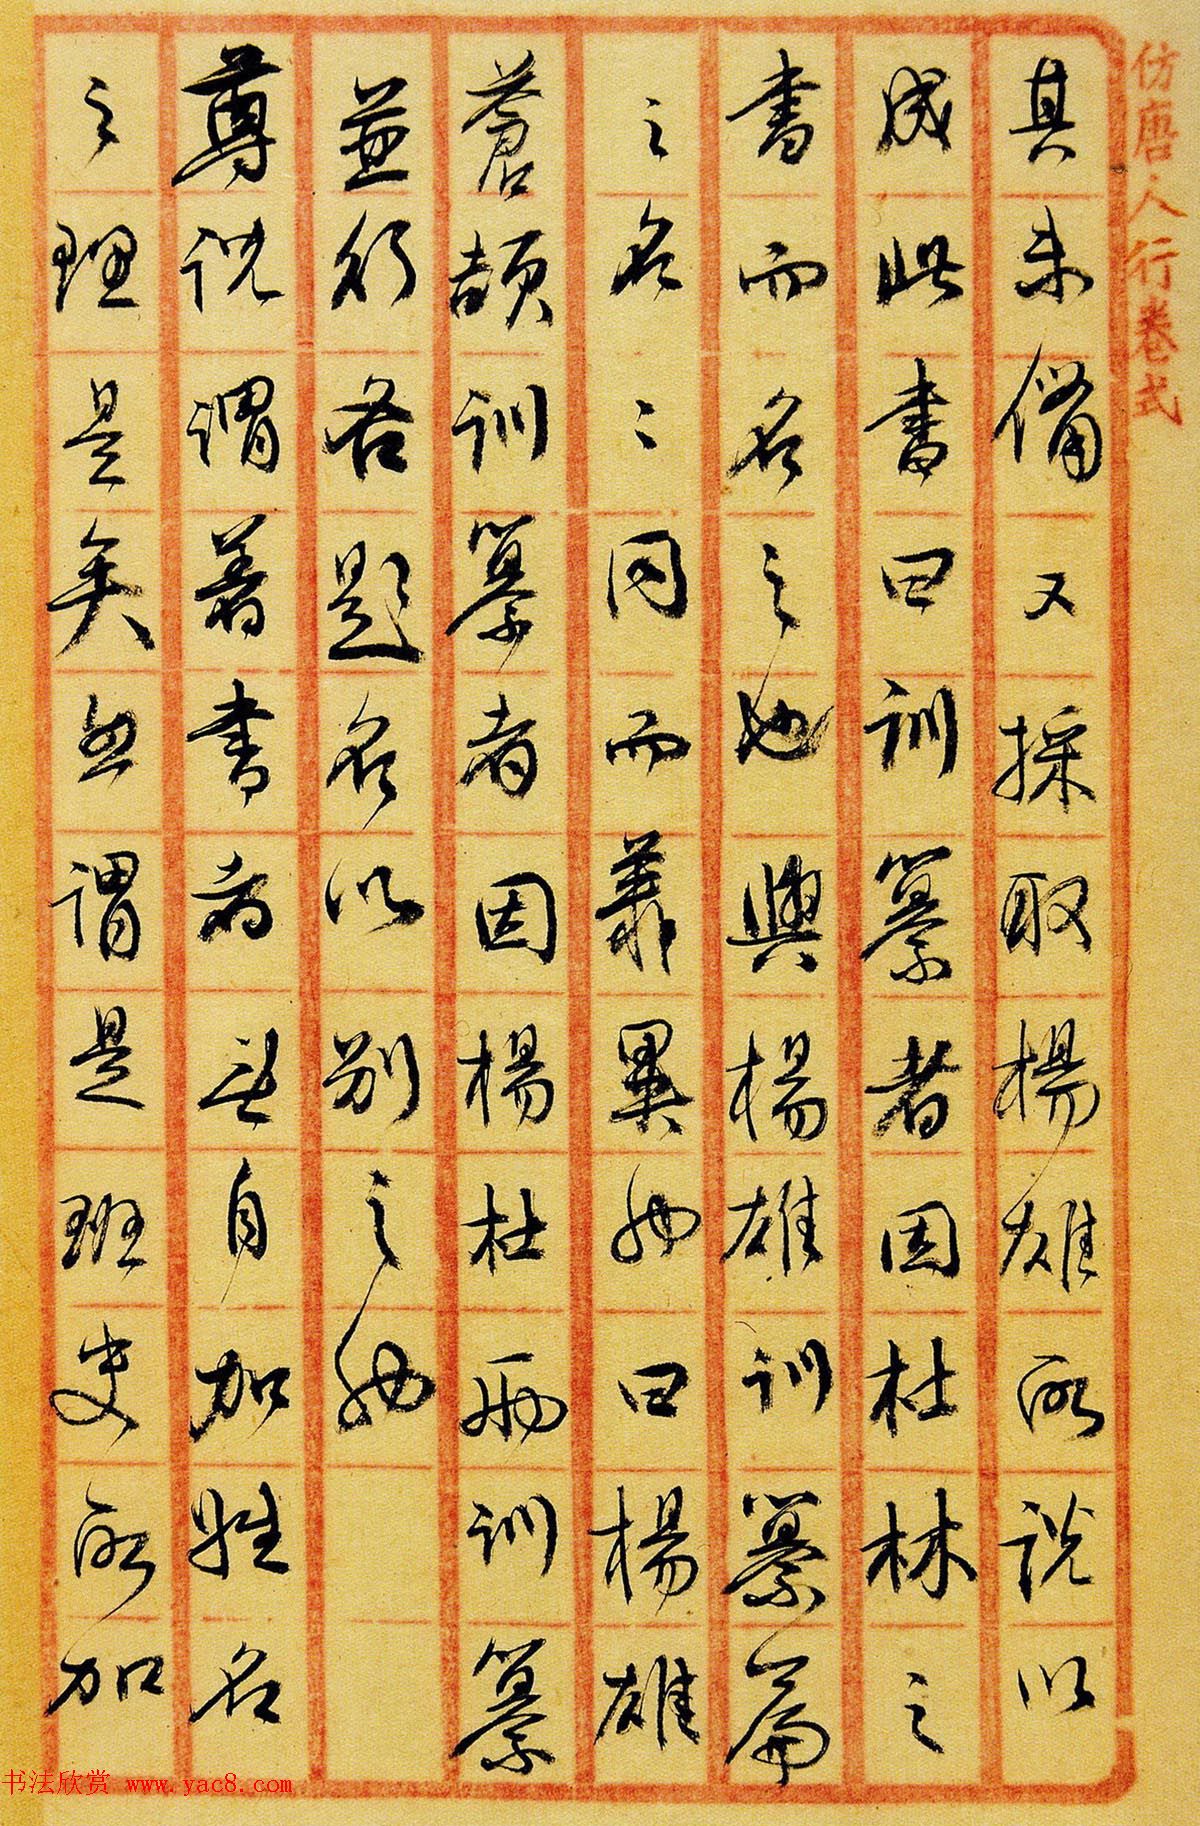 仿唐人行卷式
其未備又採取楊雄所說以
成此書曰訓纂者因杜林之
書而名之也與楊雄訓纂篇
之名〻同而義異也曰楊雄
蒼頡訓纂者因楊杜兩訓纂
並行各題名以別之也
尊說謂著書者無自加姓名
之理是矣然謂是班史所加
书法欣赏 www.yac8.com